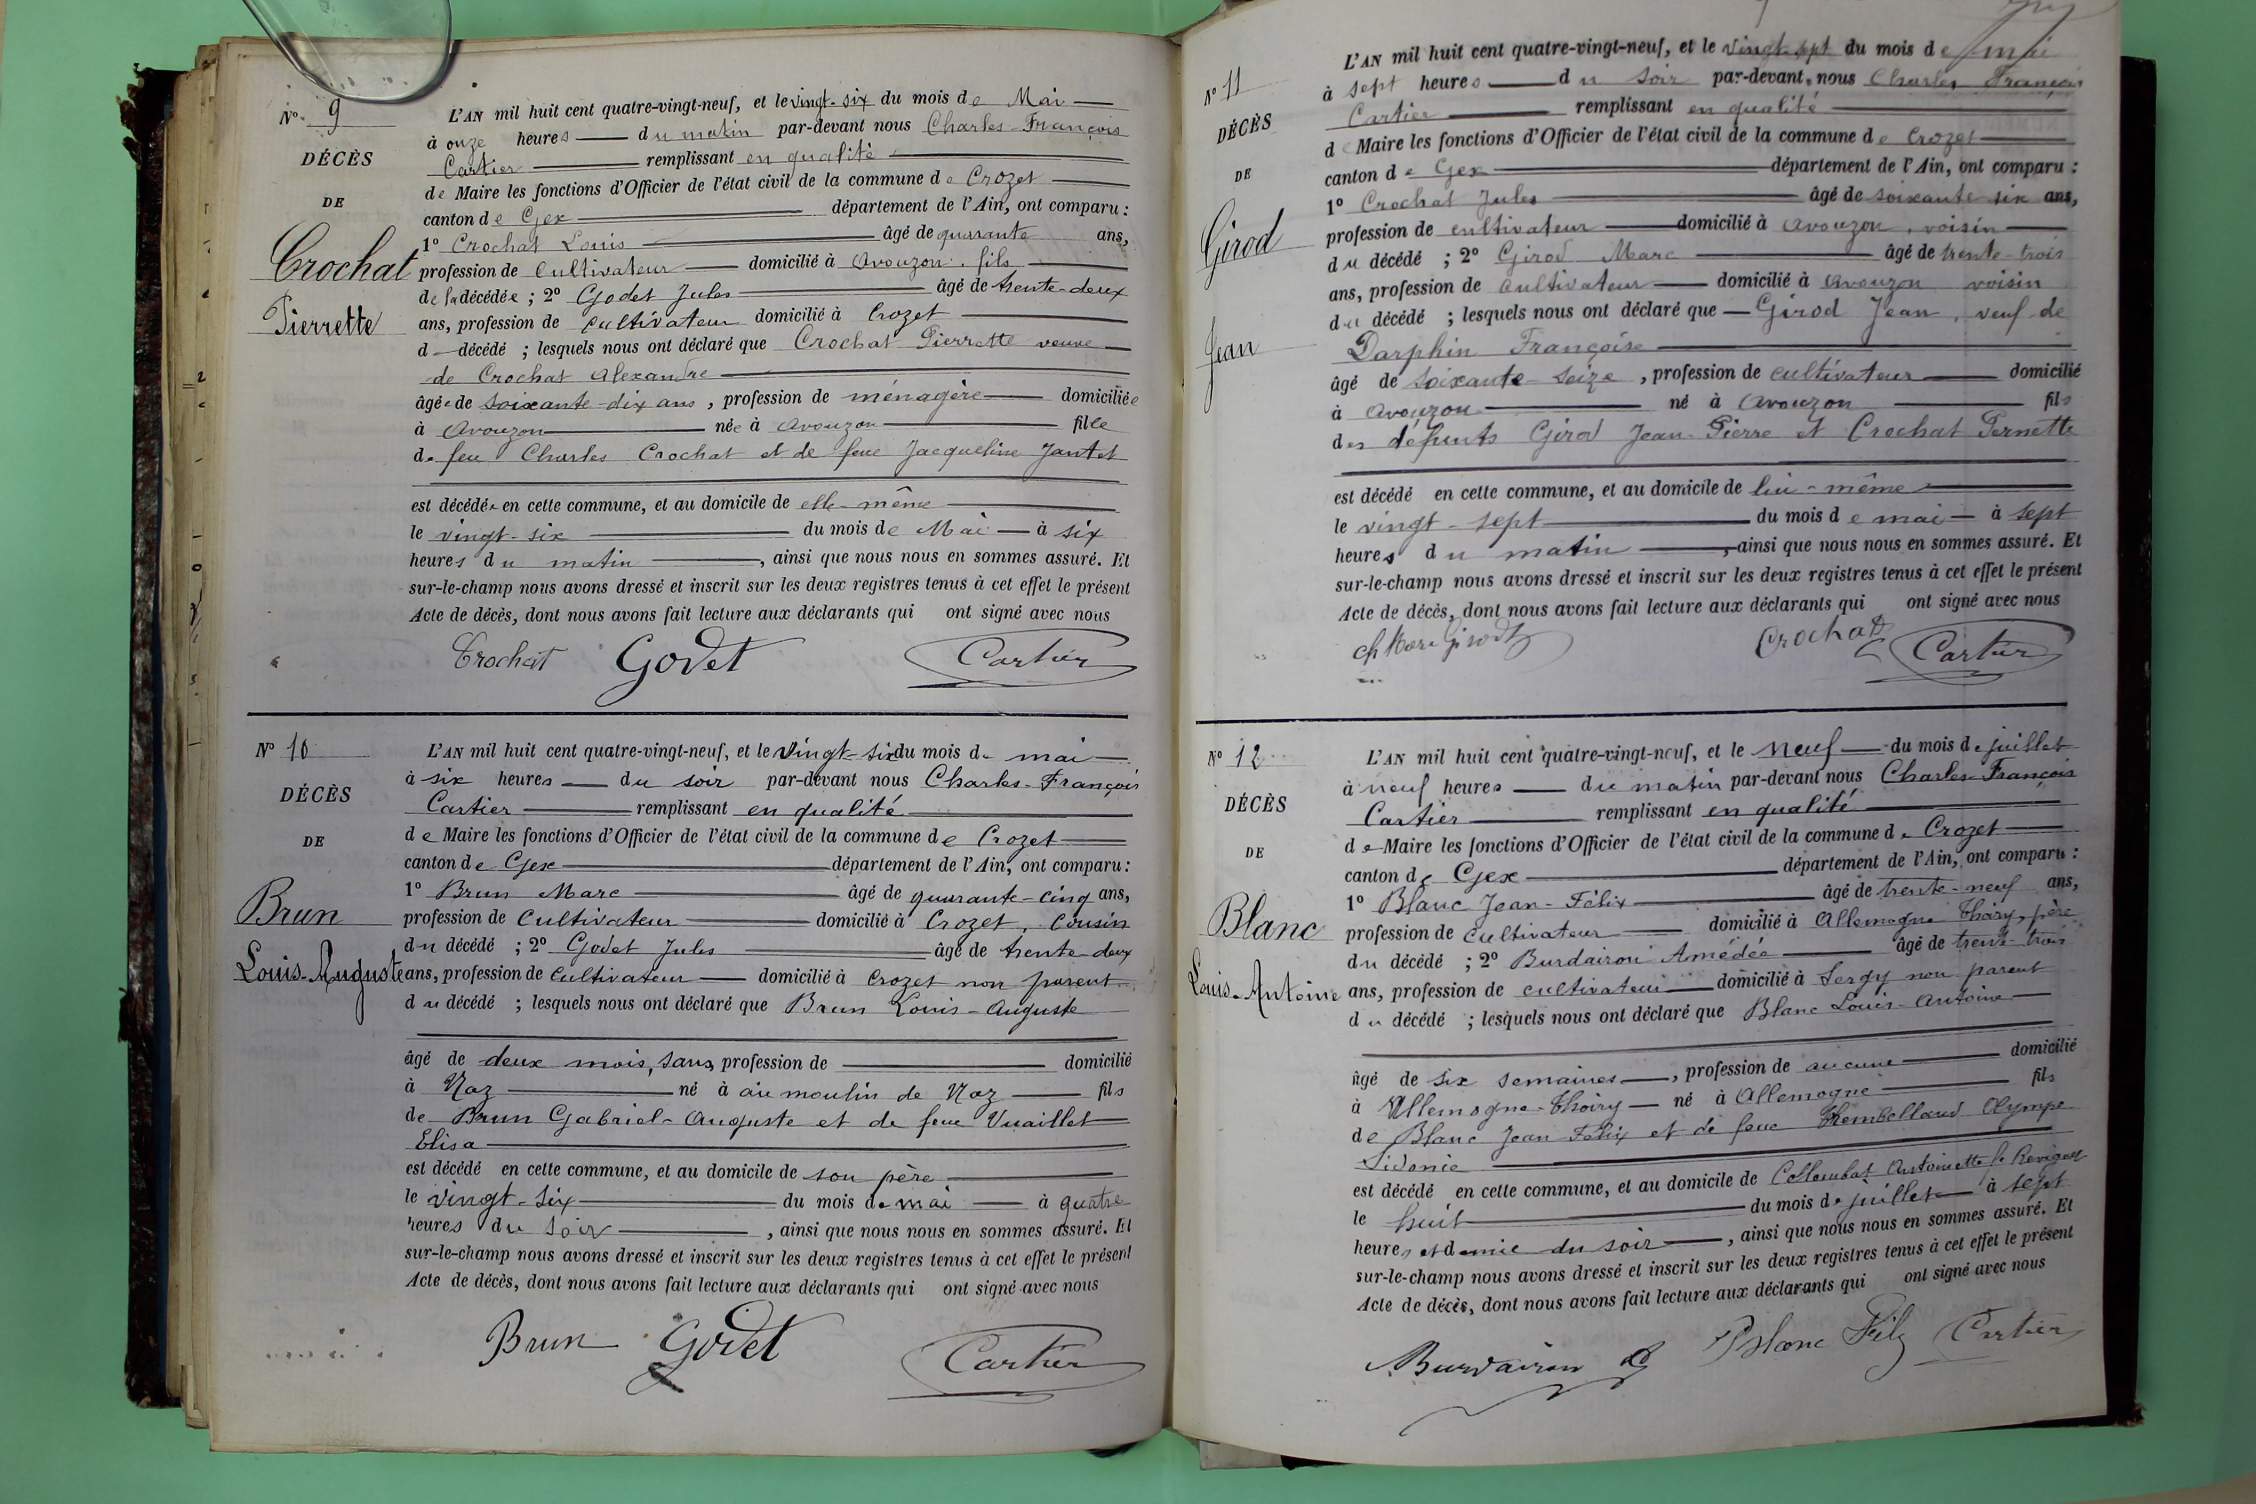 N° 9
DÉCÈS
DE
Crochat
Pierrette
L'AN mil huit cent quatre-vingt-neuf, et le vingt-six du mois de Mai
à onze heures du matin par-devant nous Charles-François
Cartier remplissant en qualité
de Maire les fonctions d'Officier de l'état civil de la commune de Crozet
canton de Gex département de l'Ain, ont comparu :
1° Crochat Louis âgé de quarante ans,
profession de cultivateur domicilié à Avouzon, fils
de la décédée ; 2° Godet Jules âgé de trente-deux
ans, profession de cultivateur domicilié à Crozet
d décédé ; lesquels nous ont déclaré que Crochat Pierrette veuve
de Crochat Alexandre
âgée de soixante-dix ans, profession de ménagère domiciliée
à Avouzon née à Avouzon fille
de feu Charles Crochat et de feue Jacqueline Jantet
est décédée en cette commune, et au domicile de elle-même
le vingt-six du mois de Mai à six
heures du matin, ainsi que nous nous en sommes assuré. Et
sur-le-champ nous avons dressé et inscrit sur les deux registres tenus à cet effet le présent
Acte de décès, dont nous avons fait lecture aux déclarants qui ont signé avec nous
Crochat Godet Cartier
N° 10
DÉCÈS
DE
Brun
Louis-Auguste
L'AN mil huit cent quatre-vingt-neuf, et le vingt-six du mois de mai
à six heures du soir par-devant nous Charles-François
Cartier remplissant en qualité
de Maire les fonctions d'Officier de l'état civil de la commune de Crozet
canton de Gex département de l'Ain, ont comparu :
1° Brun Marc âgé de quarante-cinq ans,
profession de cultivateur domicilié à Crozet, cousin
du décédé ; 2° Godet Jules âgé de trente-deux
ans, profession de cultivateur domicilié à Crozet non parent
du décédé ; lesquels nous ont déclaré que Brun Louis-Auguste
âgé de deux mois, sans profession de domicilié
à Naz né à au moulin de Naz fils
de Brun Gabriel-Auguste et de feue Vuaillet
Elisa
est décédé en cette commune, et au domicile de son père
le vingt-six du mois de mai à quatre
heures du soir, ainsi que nous nous en sommes assuré. Et
sur-le-champ nous avons dressé et inscrit sur les deux registres tenus à cet effet le présent
Acte de décès, dont nous avons fait lecture aux déclarants qui ont signé avec nous
Brun Godet Cartier
N° 11
DÉCÈS
DE
Girod
Jean
L'AN mil huit cent quatre-vingt-neuf, et le vingt-sept du mois de mai
à sept heures du soir par-devant nous Charles François
Cartier remplissant en qualité
de Maire les fonctions d'Officier de l'état civil de la commune de Crozet
canton de Gex département de l'Ain, ont comparu :
1° Crochat Jules âgé de soixante six ans,
profession de cultivateur domicilié à Avouzon, voisin
du décédé ; 2° Girod Marc âgé de trente-trois
ans, profession de cultivateur domicilié à Avouzon voisin
du décédé ; lesquels nous ont déclaré que Girod Jean, veuf de
Darphin Françoise
âgé de soixante-seize, profession de cultivateur domicilié
à Avouzon né à Avouzon fils
des défunts Girod Jean-Pierre et Crochat Pernette
est décédé en cette commune, et au domicile de lui-même
le vingt-sept du mois de mai à sept
heures du matin, ainsi que nous nous en sommes assuré. Et
sur-le-champ nous avons dressé et inscrit sur les deux registres tenus à cet effet le présent
Acte de décès, dont nous avons fait lecture aux déclarants qui ont signé avec nous
Crochat Cartier
N° 12
DÉCÈS
DE
Blanc
Louis-Antoine
L'AN mil huit cent quatre-vingt-neuf, et le neuf du mois de juillet
à neuf heures du matin par-devant nous Charles-François
Cartier remplissant en qualité
de Maire les fonctions d'Officier de l'état civil de la commune de Crozet
canton de Gex département de l'Ain, ont comparu :
1° Blanc Jean-Félix âgé de trente-neuf ans,
profession de cultivateur domicilié à Allemogne Thoiry, père
du décédé ; 2° Burdairon Amédée âgé de trente-trois
ans, profession de cultivateur domicilié à Sergy non parent
du décédé ; lesquels nous ont déclaré que Blanc Louis-Antoine
âgé de six semaines, profession de aucune domicilié
à Allemogne-Thoiry né à Allemogne fils
de Blanc Jean Félix et de feue Olympe
Sidonie
est décédé en cette commune, et au domicile de Collombat Antoinette
le huit du mois de juillet à sept
heures et demie du soir, ainsi que nous nous en sommes assuré. Et
sur-le-champ nous avons dressé et inscrit sur les deux registres tenus à cet effet le présent
Acte de décès, dont nous avons fait lecture aux déclarants qui ont signé avec nous
Burdairon Blanc Félix Cartier